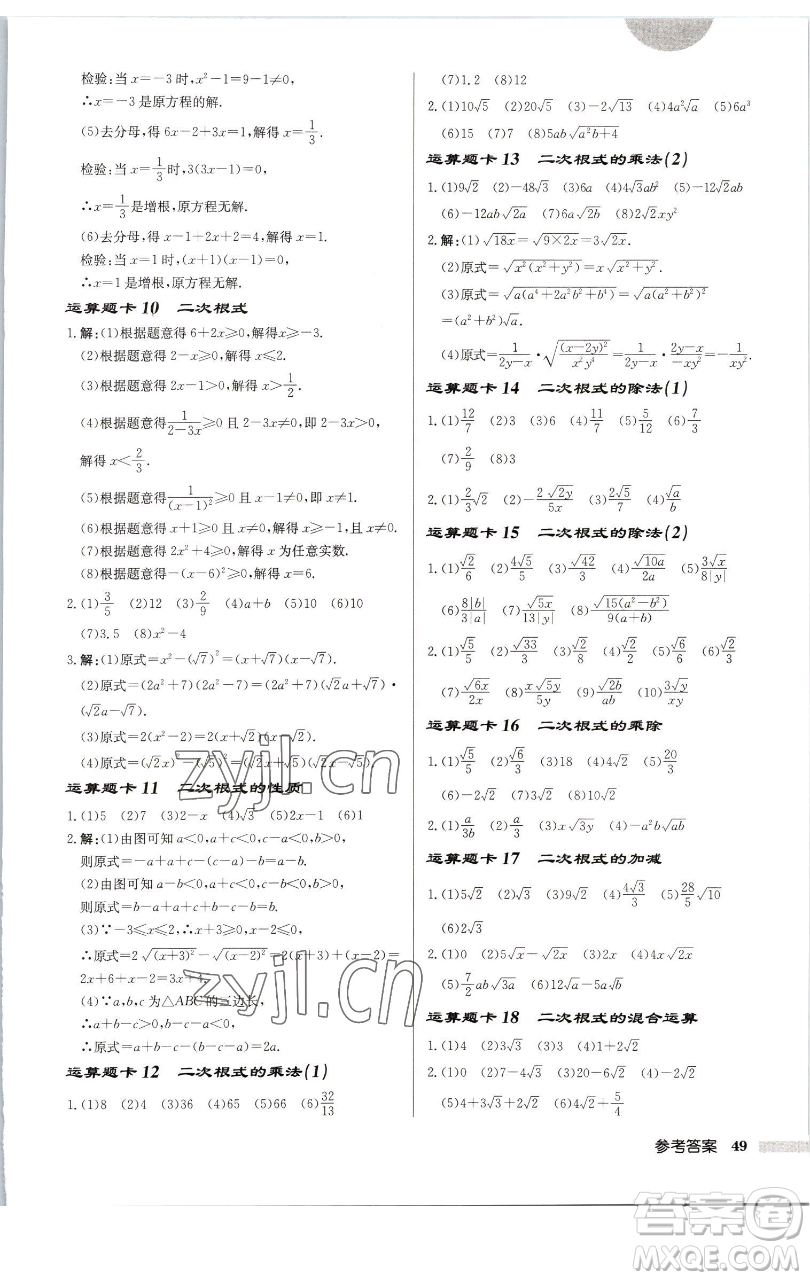 检验:当 x=-3 时,x²-1=9-1≠0,
∴x=-3 是原方程的解.
(5)去分母,得 6x-2+3x=1,解得 x=1/3.
检验:当 x=1/3时,3(3x-1)=0,
∴x=1/3是增根,原方程无解.
(6)去分母,得 x-1+2x+2=4,解得 x=1.
检验:当 x=1 时,(x+1)(x-1)=0,
∴x=1 是增根,原方程无解.
运算题卡 10 二次根式
1.解:(1)根据题意得 6+2x≥0,解得 x≥-3.
(2)根据题意得 2-x≥0,解得 x≤2.
(3)根据题意得 2x-1>0,解得 x>1/2.
(4)根据题意得 1/(2-3x)≥0 且 2-3x≠0,即 2-3x>0,
解得 x<2/3.
(5)根据题意得 1/(x-1)²≥0 且 x-1≠0,即 x≠1.
(6)根据题意得 x+1≥0 且 x≠0,解得 x≥-1 且 x≠0.
(7)根据题意得 2x²+4≥0,解得 x 为任意实数.
(8)根据题意得-(x-6)²≥0,解得 x=6.
2.(1)3/5 (2)12 (3)2/9 (4)a+b (5)10 (6)10
(7)3.5 (8)x²-4
3.解:(1)原式=x²-(√7)²=(x+√7)(x-√7).
(2)原式=(2a²+7)(2a²-7)=(2a²+7)(√2a+√7)·
(√2a-√7).
(3)原式=2(x²-2)=2(x+√2)(x-√2).
(4)原式=(√2x)²-(√5)²=(√2x+√5)(√2x-√5).
运算题卡 11 二次根式的性质
1.(1)5 (2)7 (3)2-x (4)√3 (5)2x-1 (6)1
2.解:(1)由图可知 a<0,a+c<0,c-a<0,b>0,
则原式=-a+a+c-c+a-b=a-b.
(2)由图可知 a-b<0,a+c<0,b-c>0,
则原式=b-a+a+c+b-c-b=b.
(3)∵-3≤x≤2,∴x+3≥0,x-2≤0,
∴原式=2√(x+3)²-√(x-2)²=2(x+3)+(x-2)=
2x+6+x-2=3x+4.
(4)∵a,b,c 为△ABC 的三边长,
∴a+b-c>0,b-c-a<0,
∴原式=a+b-c-(b-c-a)=2a.
运算题卡 12 二次根式的乘法(1)
1.(1)8 (2)4 (3)36 (4)65 (5)66 (6)32/13
(7)1.2 (8)12
2.(1)10√5 (2)20√3 (3)-2√13 (4)4a²√a (5)6a³
(6)15 (7)7 (8)5ab√(a²b+4)
运算题卡 13 二次根式的乘法(2)
1.(1)9√2 (2)-48√3 (3)6a (4)4√3ab² (5)-12√2ab
(6)-12ab√2a (7)6a√2b (8)2√2xy²
2.解:(1)√18x=√(9×2x)=3√2x.
(2)原式=√(x²(x²+y²))=x√(x²+y²).
(3)原式=√(a(a⁴+2a²b²+b⁴))=√(a(a²+b²)²)
=(a²+b²)√a.
(4)原式=1/(2y-x)·√((x-2y)²/(x²y⁴))=1/(2y-x)·(2y-x)/(-xy²)=-1/(xy²).
运算题卡 14 二次根式的除法(1)
1.(1)12/7 (2)3 (3)6 (4)11/7 (5)5/12 (6)7/3
(7)2/9 (8)3
2.(1)2/3√2 (2)-2√2y/5x (3)2√5/7 (4)√a/b
运算题卡 15 二次根式的除法(2)
1.(1)√2/6 (2)4√5/5 (3)√42/3 (4)√10a/2a (5)3√x/8|y|
(6)8|b|/3|a| (7)√5x/13|y| (8)√15(a²-b²)/9(a+b)
2.(1)√5/5 (2)√33/3 (3)√2/8 (4)√2/2 (5)√6/6 (6)√2/3
(7)√6x/2x (8)x√5y/5y (9)√2b/ab (10)3√y/xy
运算题卡 16 二次根式的乘除
1.(1)√5/5 (2)√6/3 (3)18 (4)4√3 (5)20/3
(6)2√2 (7)3√3 (8)10√2
2.(1)a/3b (2)a/3 (3)x√3y (4)-a²b√ab
运算题卡 17 二次根式的加减
1.(1)5√2 (2)√3 (3)9√2 (4)4√3/3 (5)28/5√10
(6)2√3
2.(1)0 (2)5√x-2√x (3)√x (4)-√3
(5)7/2ab√3a (6)12√a-5a√b
运算题卡 18 二次根式的混合运算
1.(1)4 (2)3√3 (3)√3 (4)1+2√5
2.(1)0 (2)7-5√3 (3)20-6√2 (4)-2√2
(5)4+3√3+2√2 (6)4√2+5/4
参考答案 49
zyjl.cn
zyjl.cn
答案圈
MXQE.COM